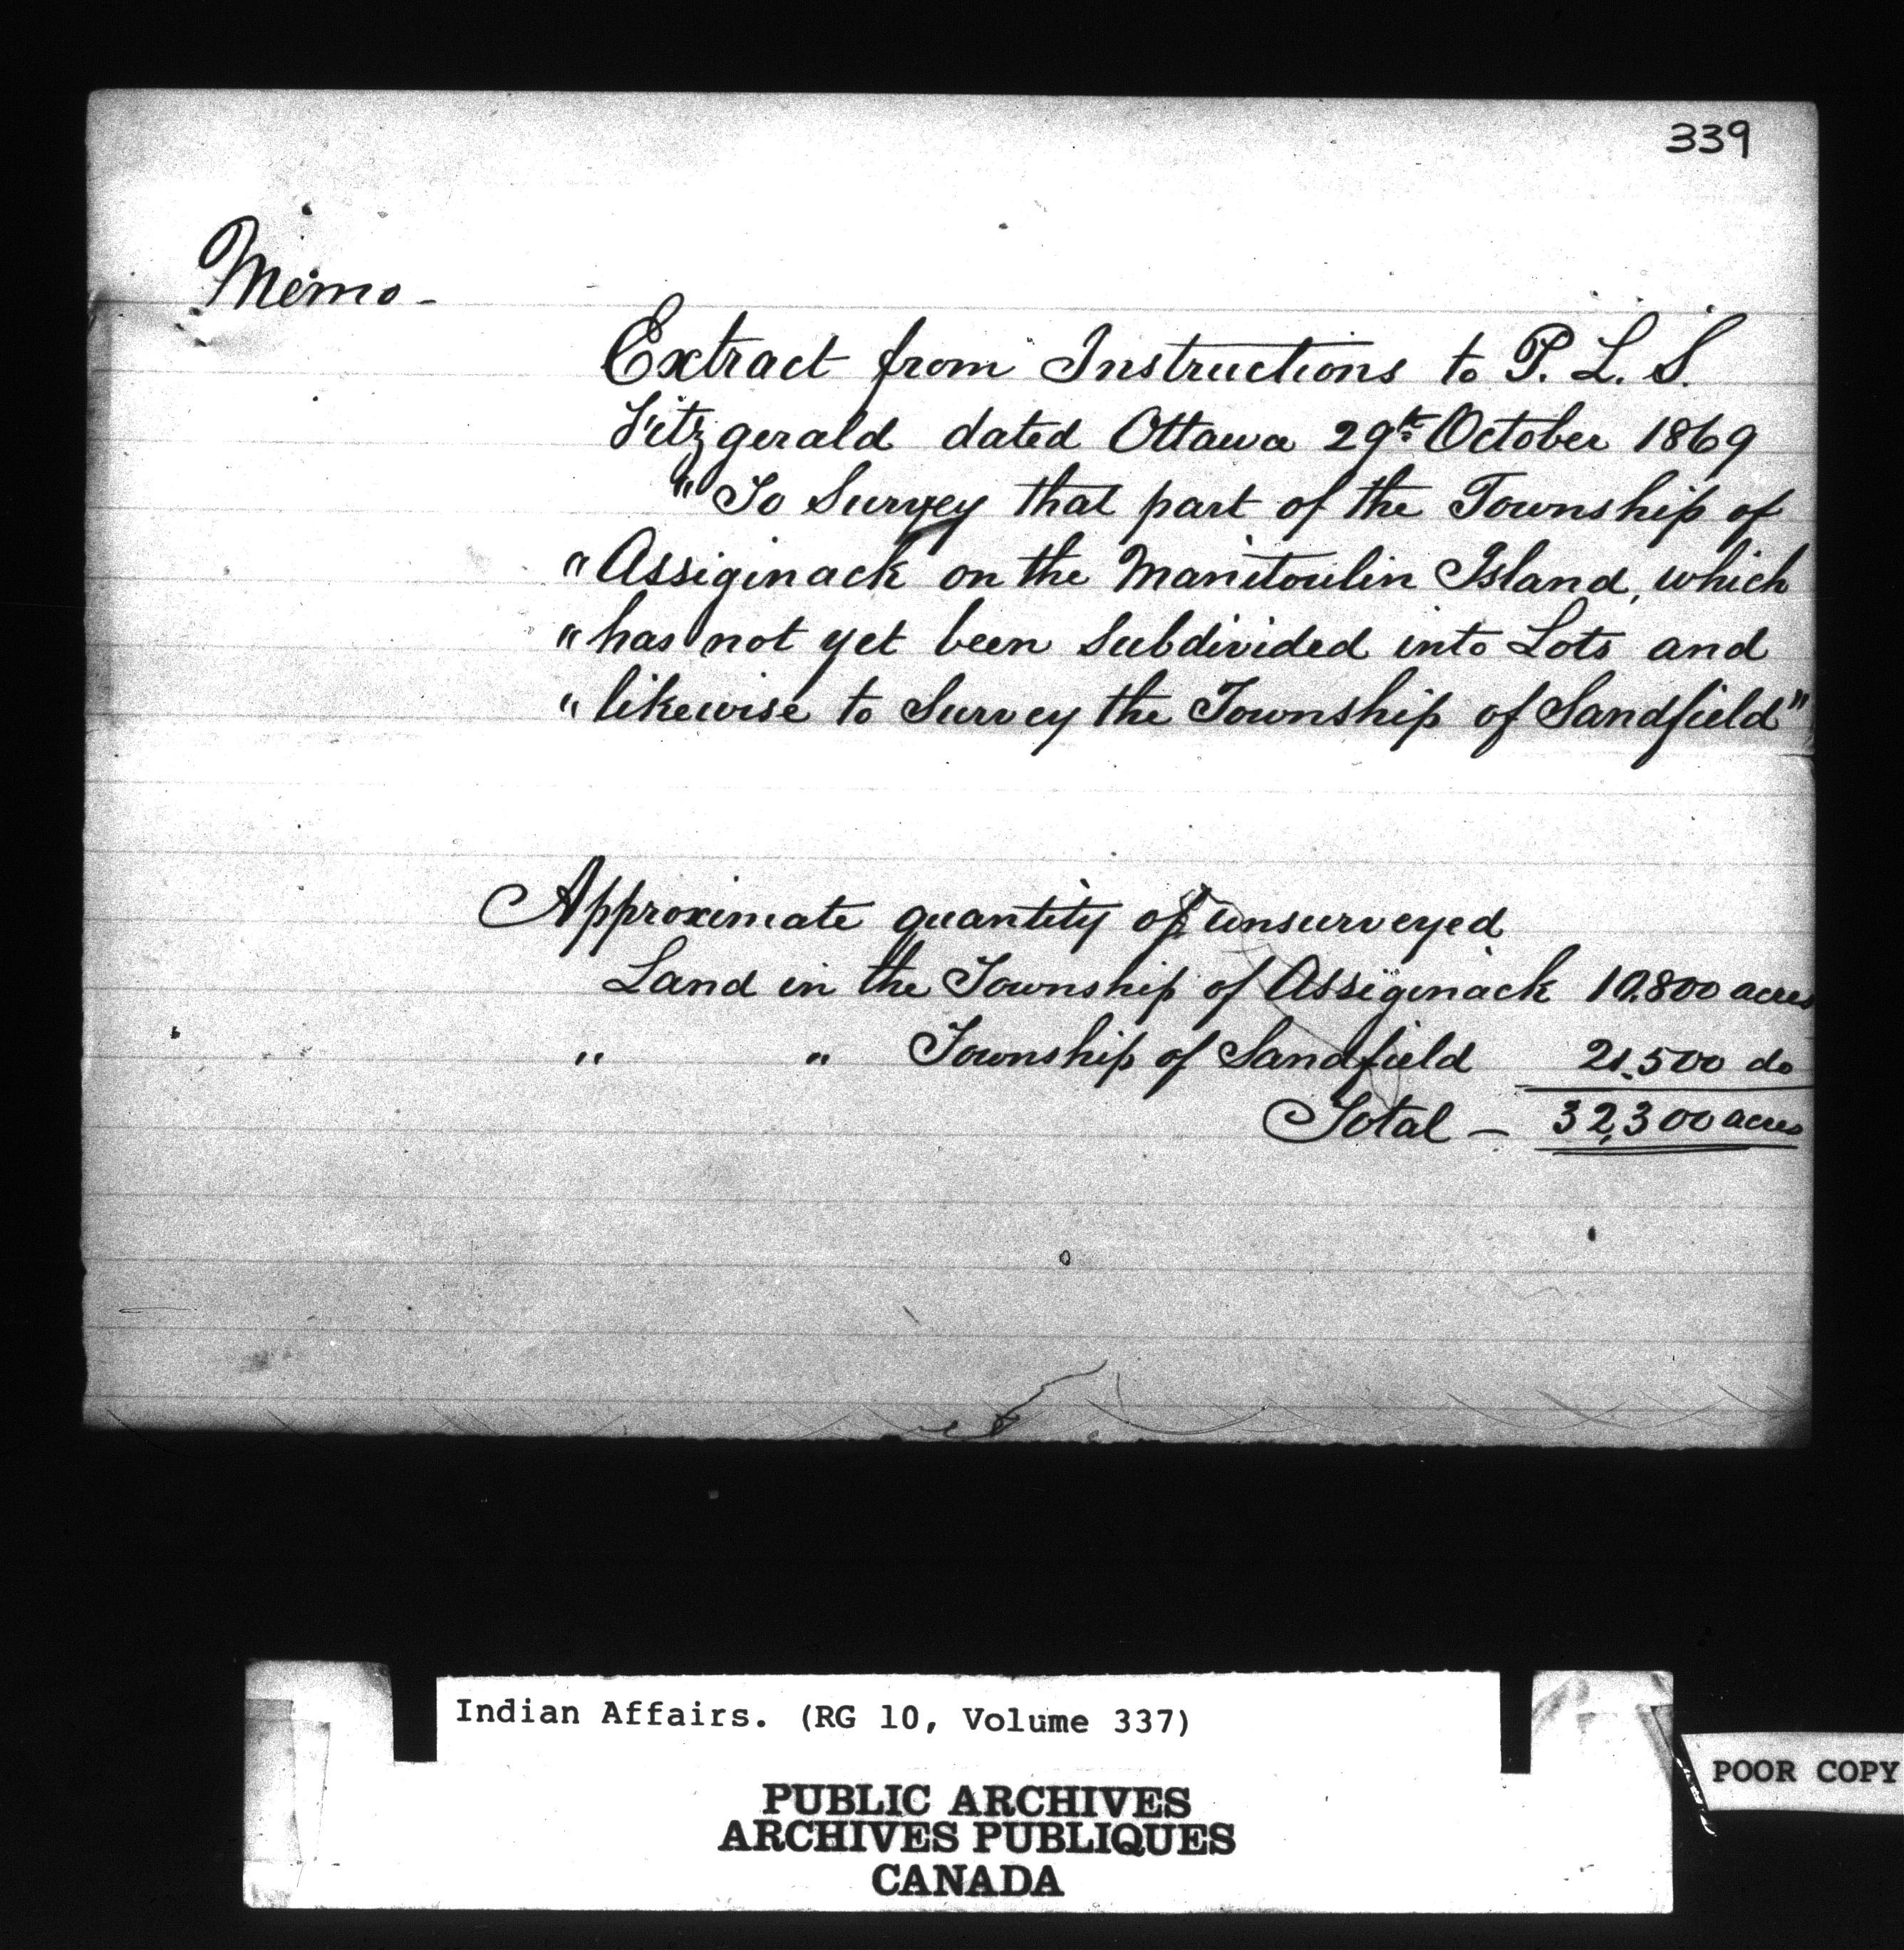 339
Memo -
Extract from Instructions to P. L. S.
Fitzgerald dated Ottawa 29th October 1869
"To Survey that part of the Township of
"Assiginack on the Manitoulin Island, which
"has not yet been Subdivided into Lots and
"likewise to Survey the Township of Sandfield"
Approximate quantity of unsurveyed
Land in the Township of Assiginack 10,800 acres
" " Township of Sandfield 21,500 do
Total - 32,300 acres
Indian Affairs. (RG 10, Volume 337)
PUBLIC ARCHIVES
ARCHIVES PUBLIQUES
CANADA
POOR COPY